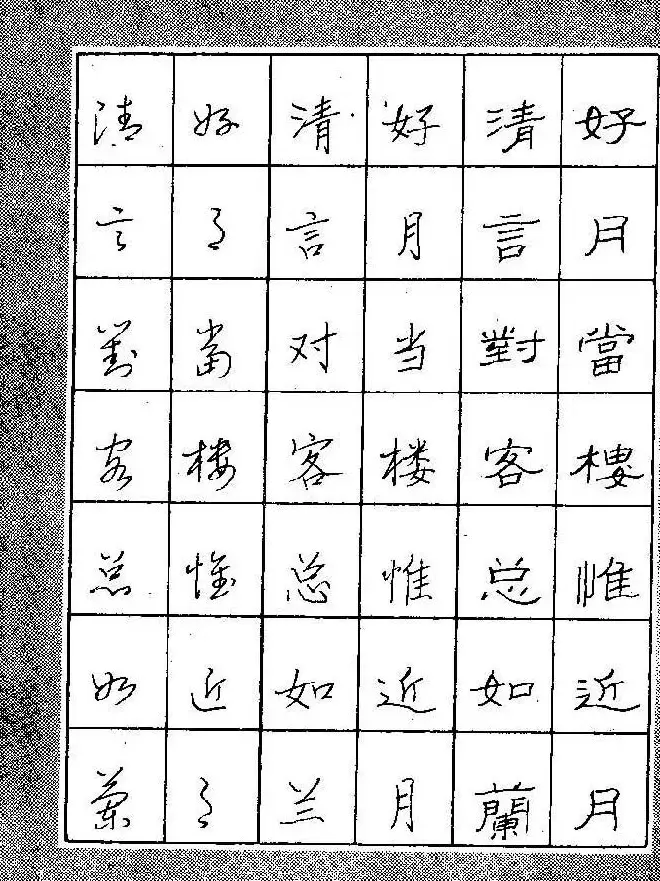 好月當樓惟近月
清言對客总如蘭
好月当楼惟近月
清言对客总如兰
好月當楼惟近月
清言對客总如蘭